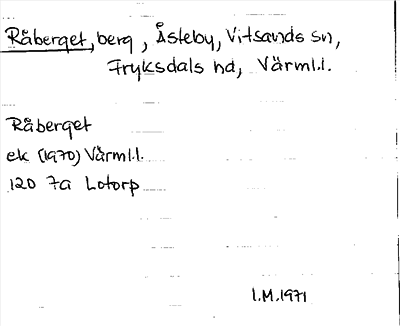 Råberget, berg, Åsteby, Vitsands sn,
Fryksdals hd, Värml.l.
Råberget
ek (1970) Värml.l.
120 7a Lotorp
I.M.1971